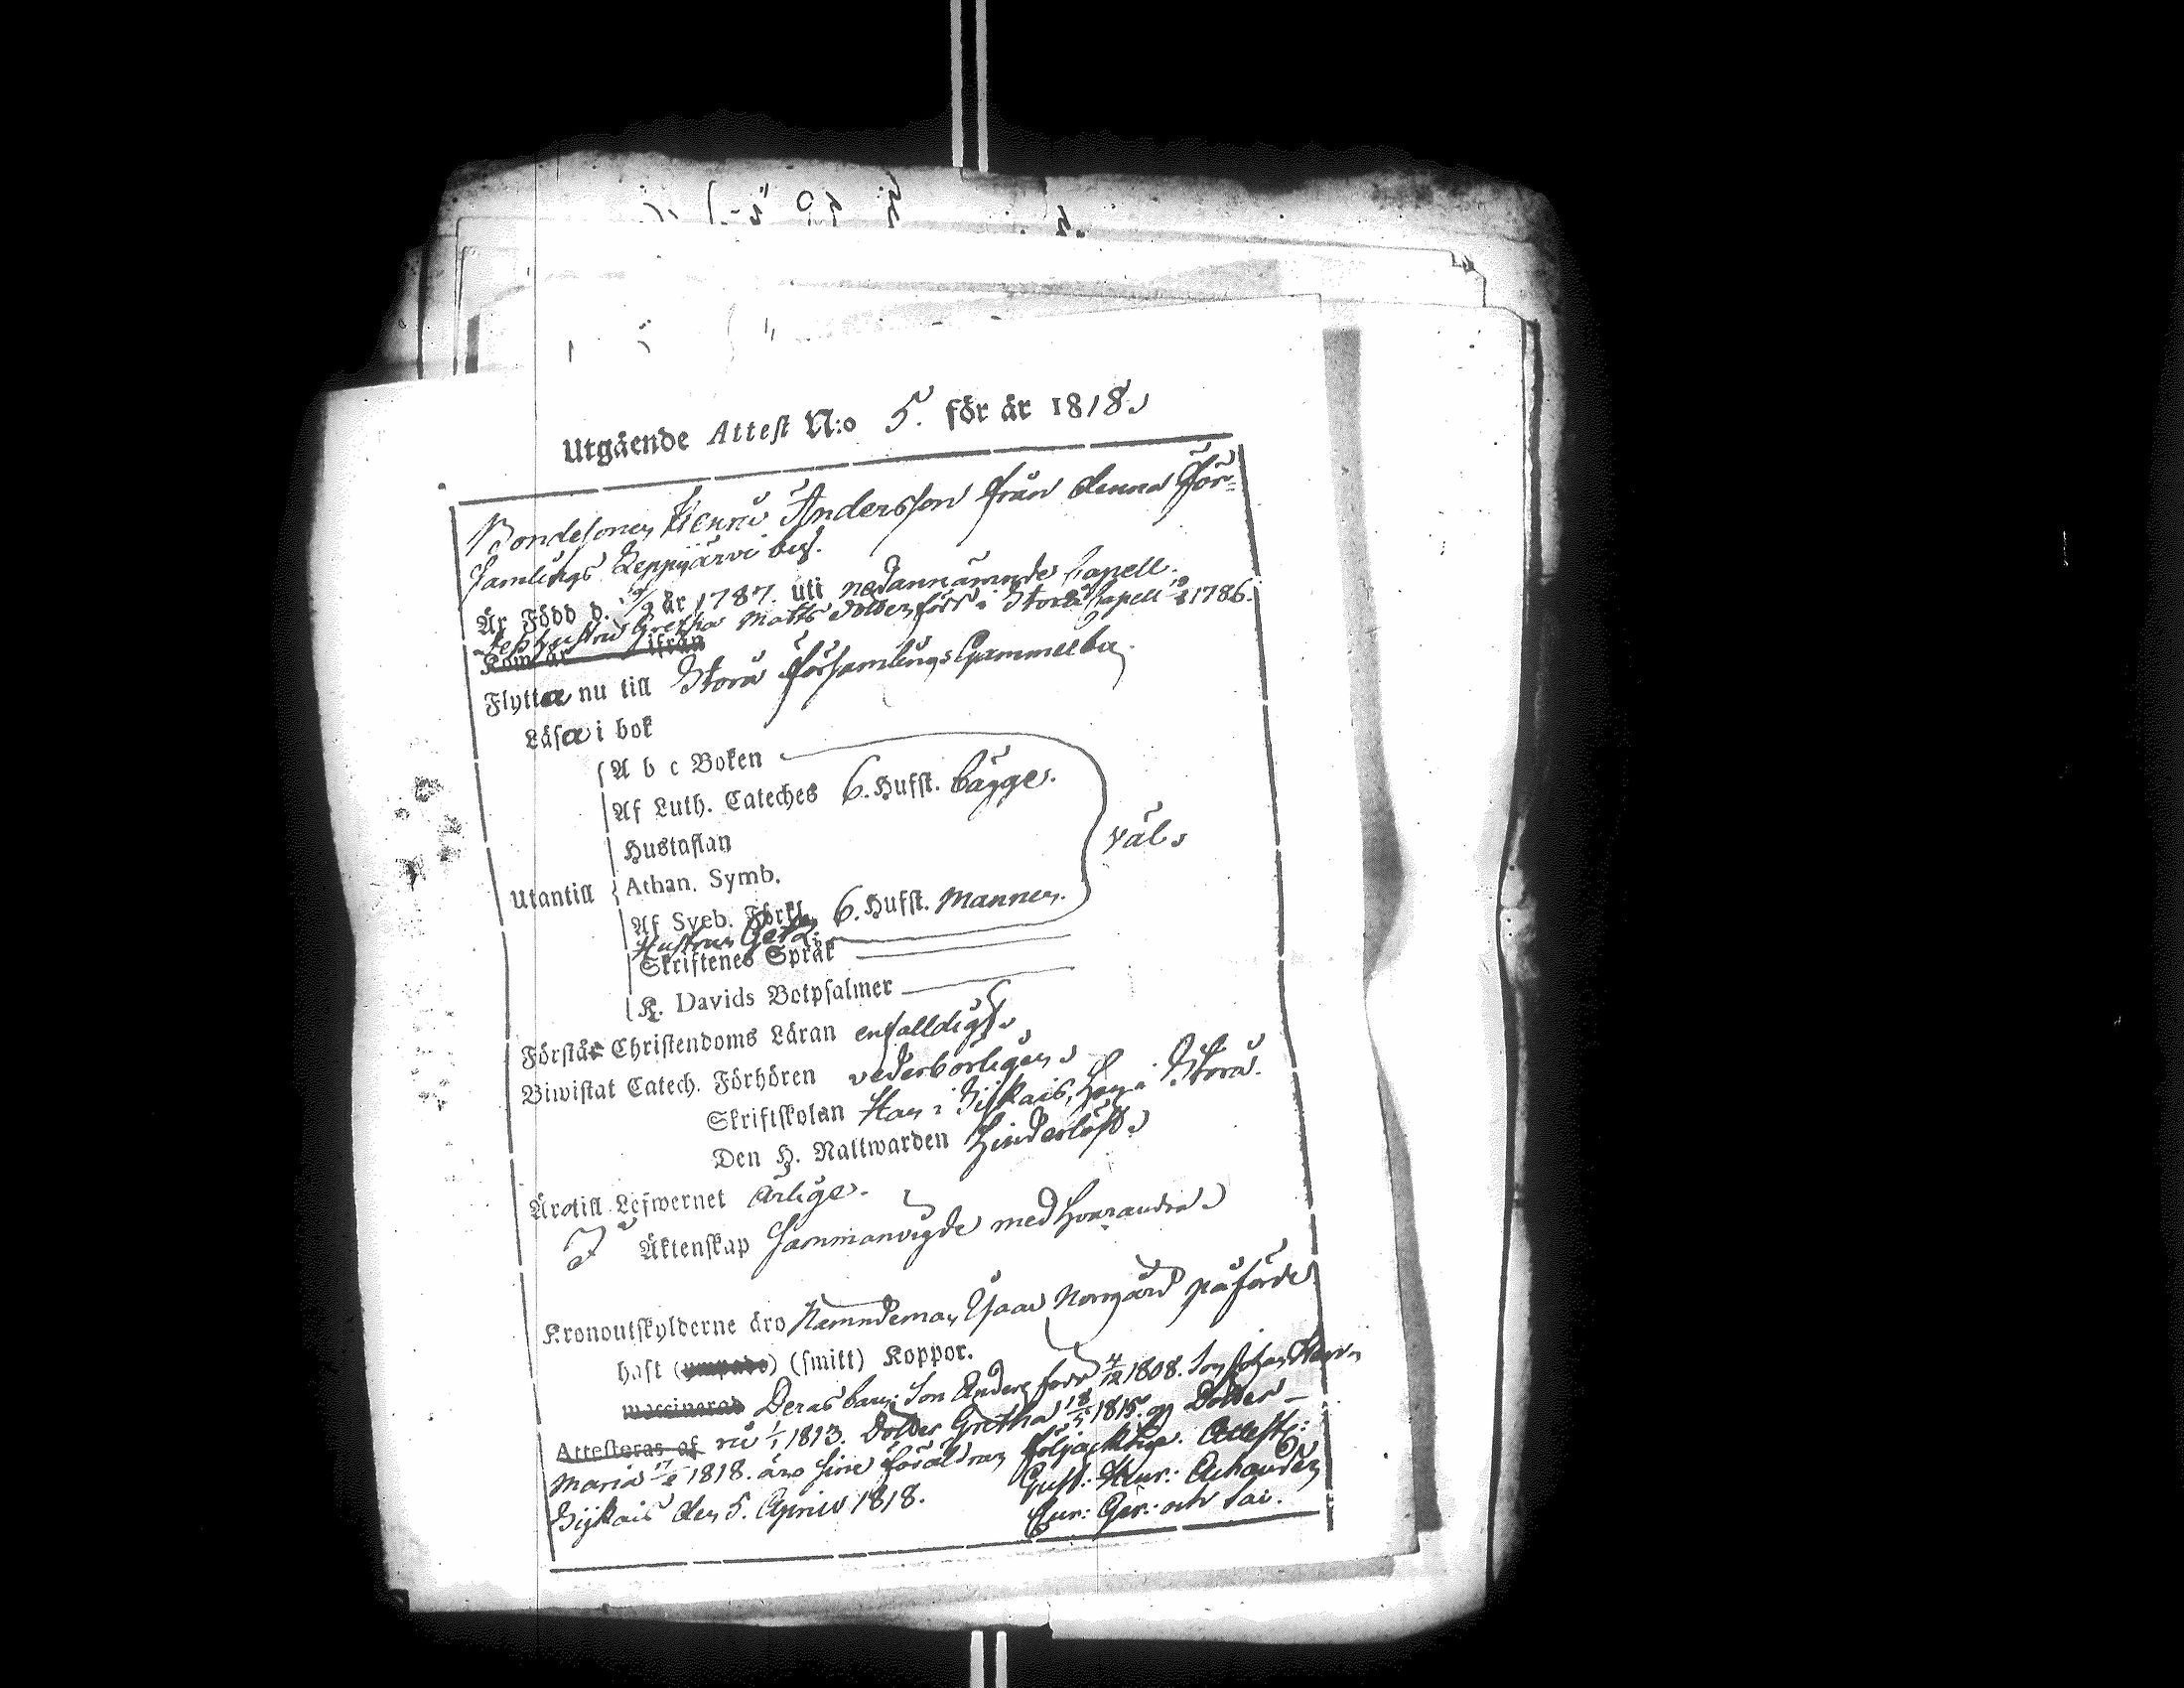 Utgående Attest N:o 5. för år 1818.
Bondesonen Henric Andersson från denna för-
samlings Leppijärvi by.
Är Född d. /9 år 1787. uti nedannämnde Capell.
Dess hustru Gretha Matts dotter född i Storå Capell 1786.
Kom år ifrån
Flytta nu till Storå församlings Gammelby.
Läsa i bok
A b c Boken
Af Luth. Cateches 6. Hufst. bägge.
Hustaflan
väl.
Athan. Symb.
Utantill
Af Sveb. Förkl. 6. Hufst. Mannen.
Hustrun
Skriftenes Språk
K. Davids Botpsalmer
Förstår Christendoms Läran enfalldigt.
Biwistat Catech. Förhören vederbörligen.
Skriftskolan Han i Siikais, hon i Storå.
Den H. Nattwarden hinderlöst.
Äro till Lefwernet ärlige.
I Äktenskap sammanvigde med hvarandra.
Kronoutskylderne äro Nämndeman Isaac Norrgård påförde
haft (ympade) (smitt) Koppor.
vaccinerad Deras barn: Son Anders född 4/12 1808. Son Johan Hen-
Attesteras af ric 1/1 1813. Dotter Gretha 18/5 1815. och Dotter
Maria 1818. äro sine föräldrar följacktige. Attest:
Siikais den 5. Aprill 1818. Gust: Henr: Achander